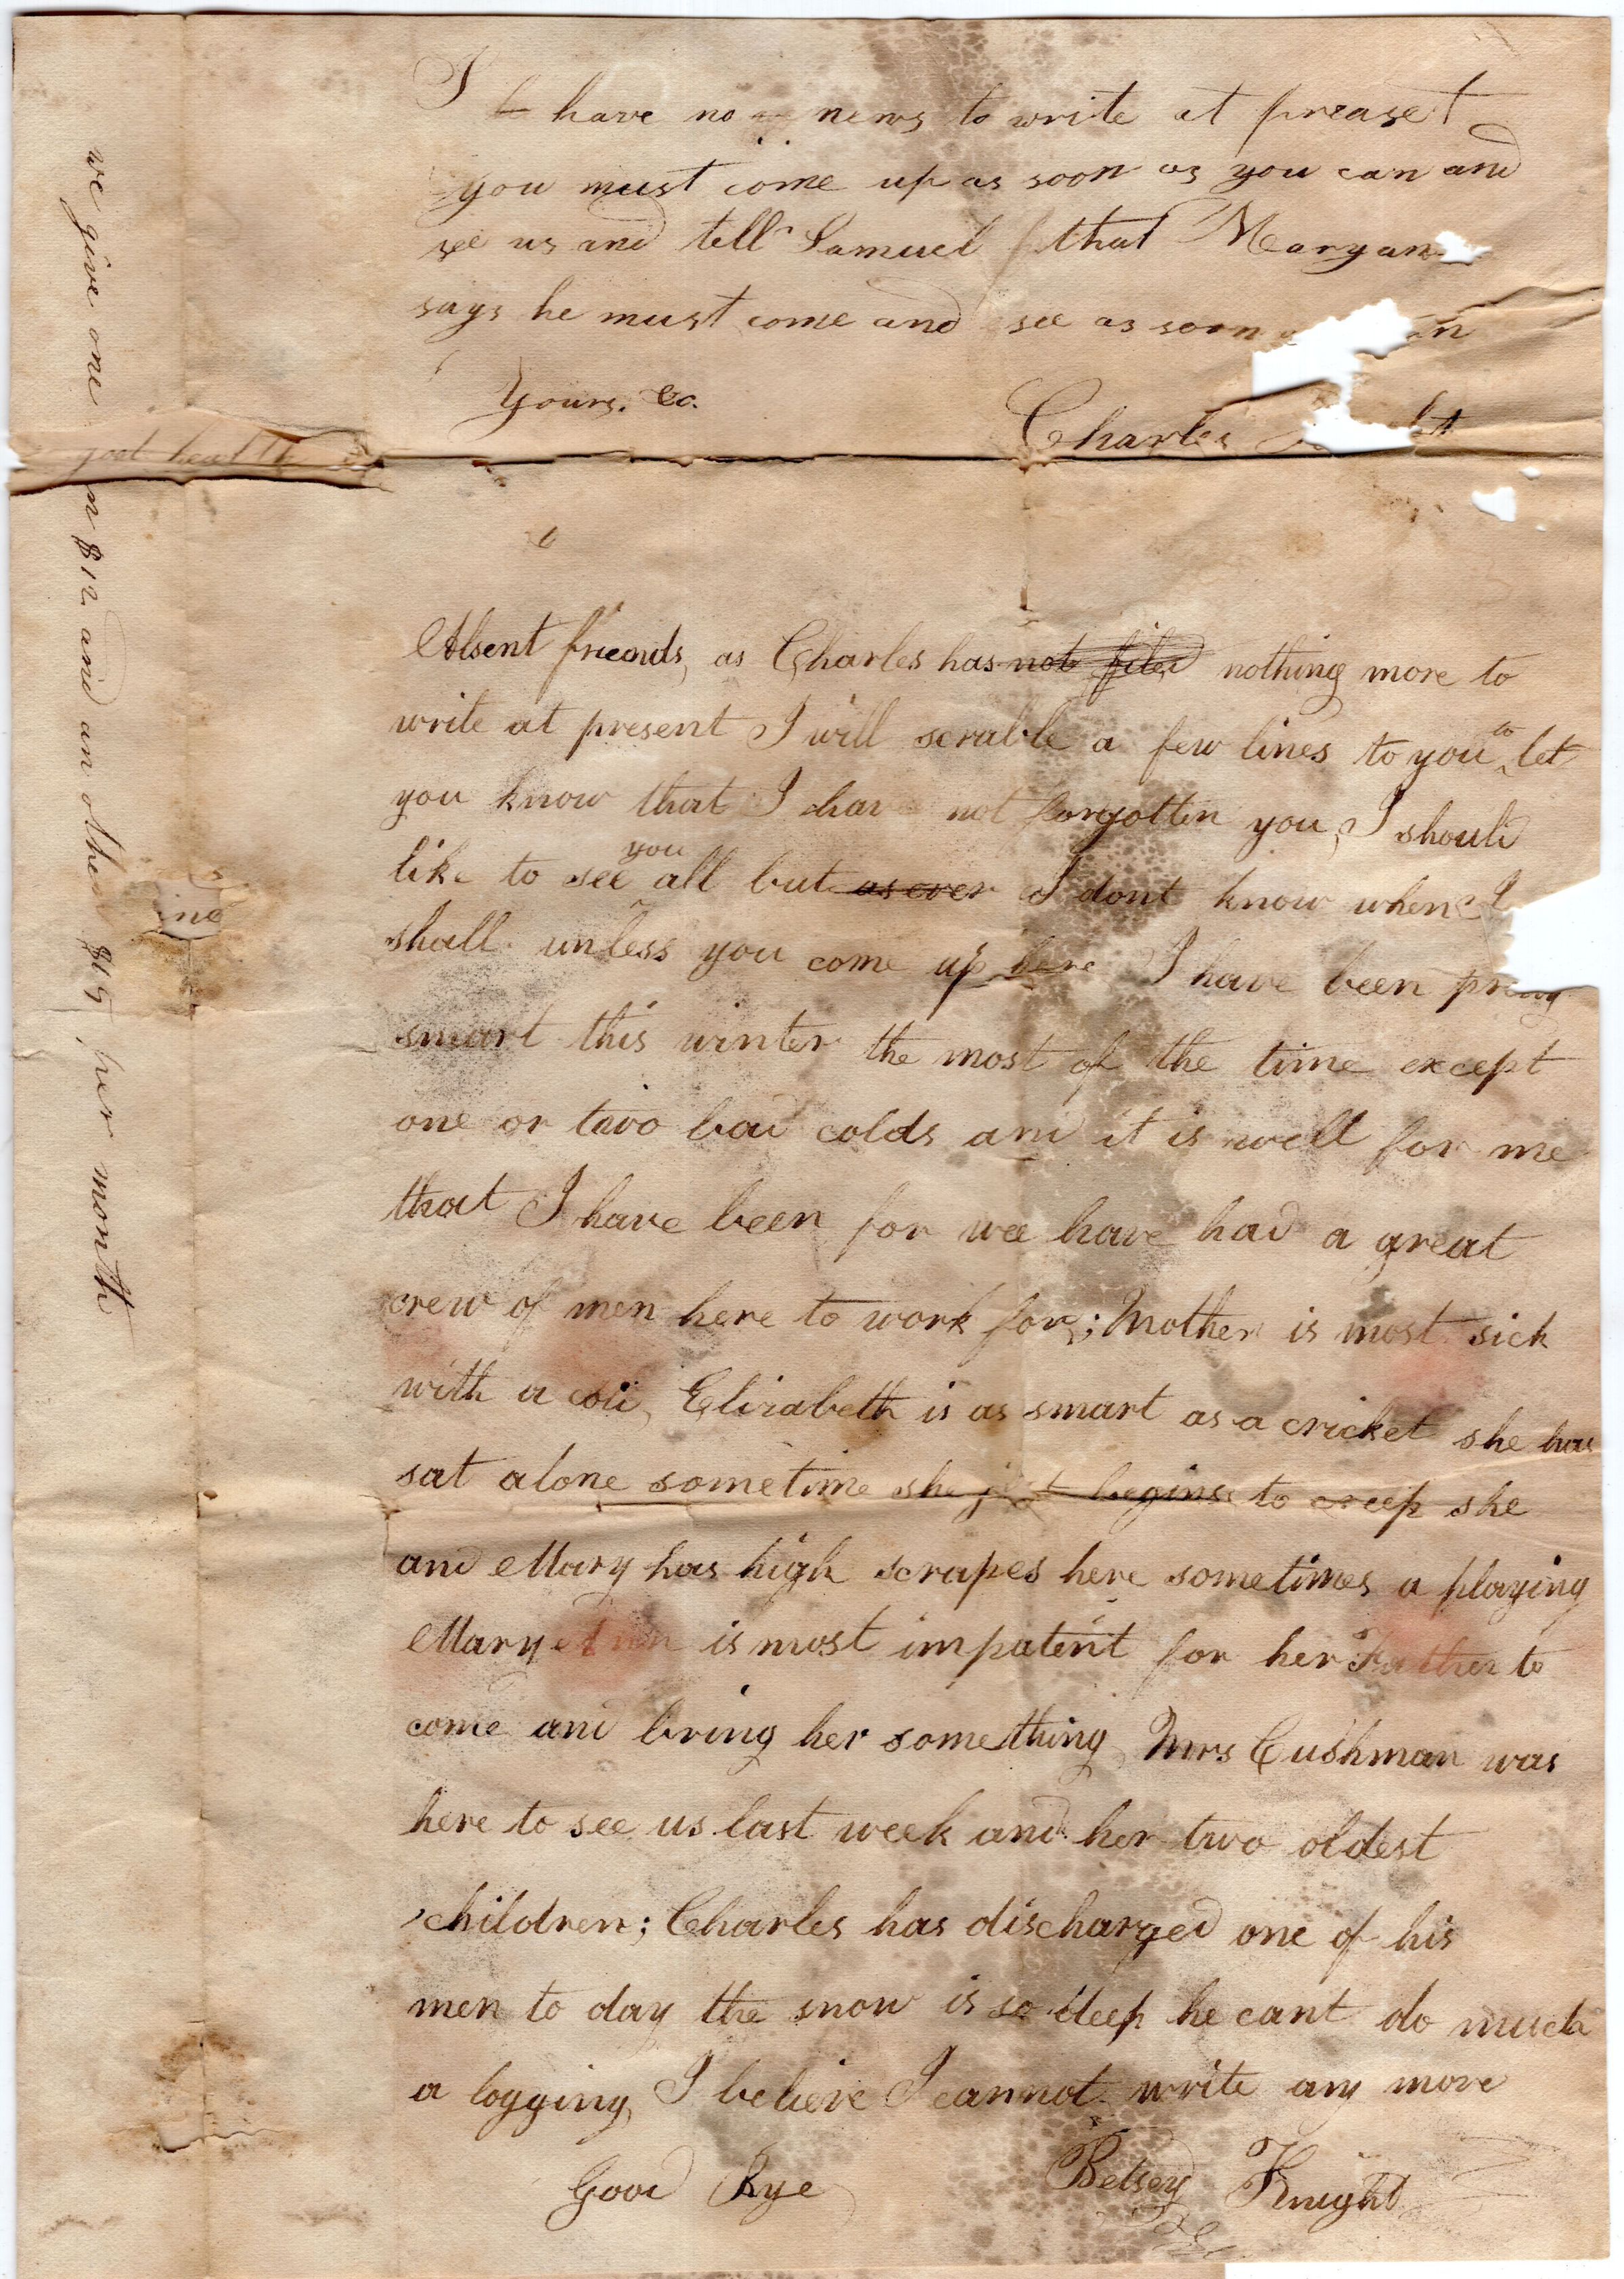 I have no news to write at preaset
you must come up as soon as you can and
see us and tell Samuel that Maryan
says he must come and see as soon
Yours. &c.
Charles
Absent friends, as Charles has not nothing more to
write at present I will scrable a few lines to you to let
you know that I have not forgotten you, I should
like to see you all but as ever I dont know when I
shall unless you come up here I have been
smart this winter the most of the time except
one or two bad colds and it is well for me
that I have been for wee have had a great
crew of men here to work for; Mother is most sick
with a cold, Elizabeth is as smart as a cricket she has
sat alone sometime she just begins to creep she
and Mary has high scrapes here sometimes a playing
Mary Ann is most impatent for her Father to
come and bring her something, Mrs Cushman was
here to see us last week and her two oldest
children; Charles has discharged one of his
men to day the snow is so deep he cant do much
a logging, I believe I cannot write any more
Good Bye
Betsey Knight
we give one n $12 and an other $15 per month